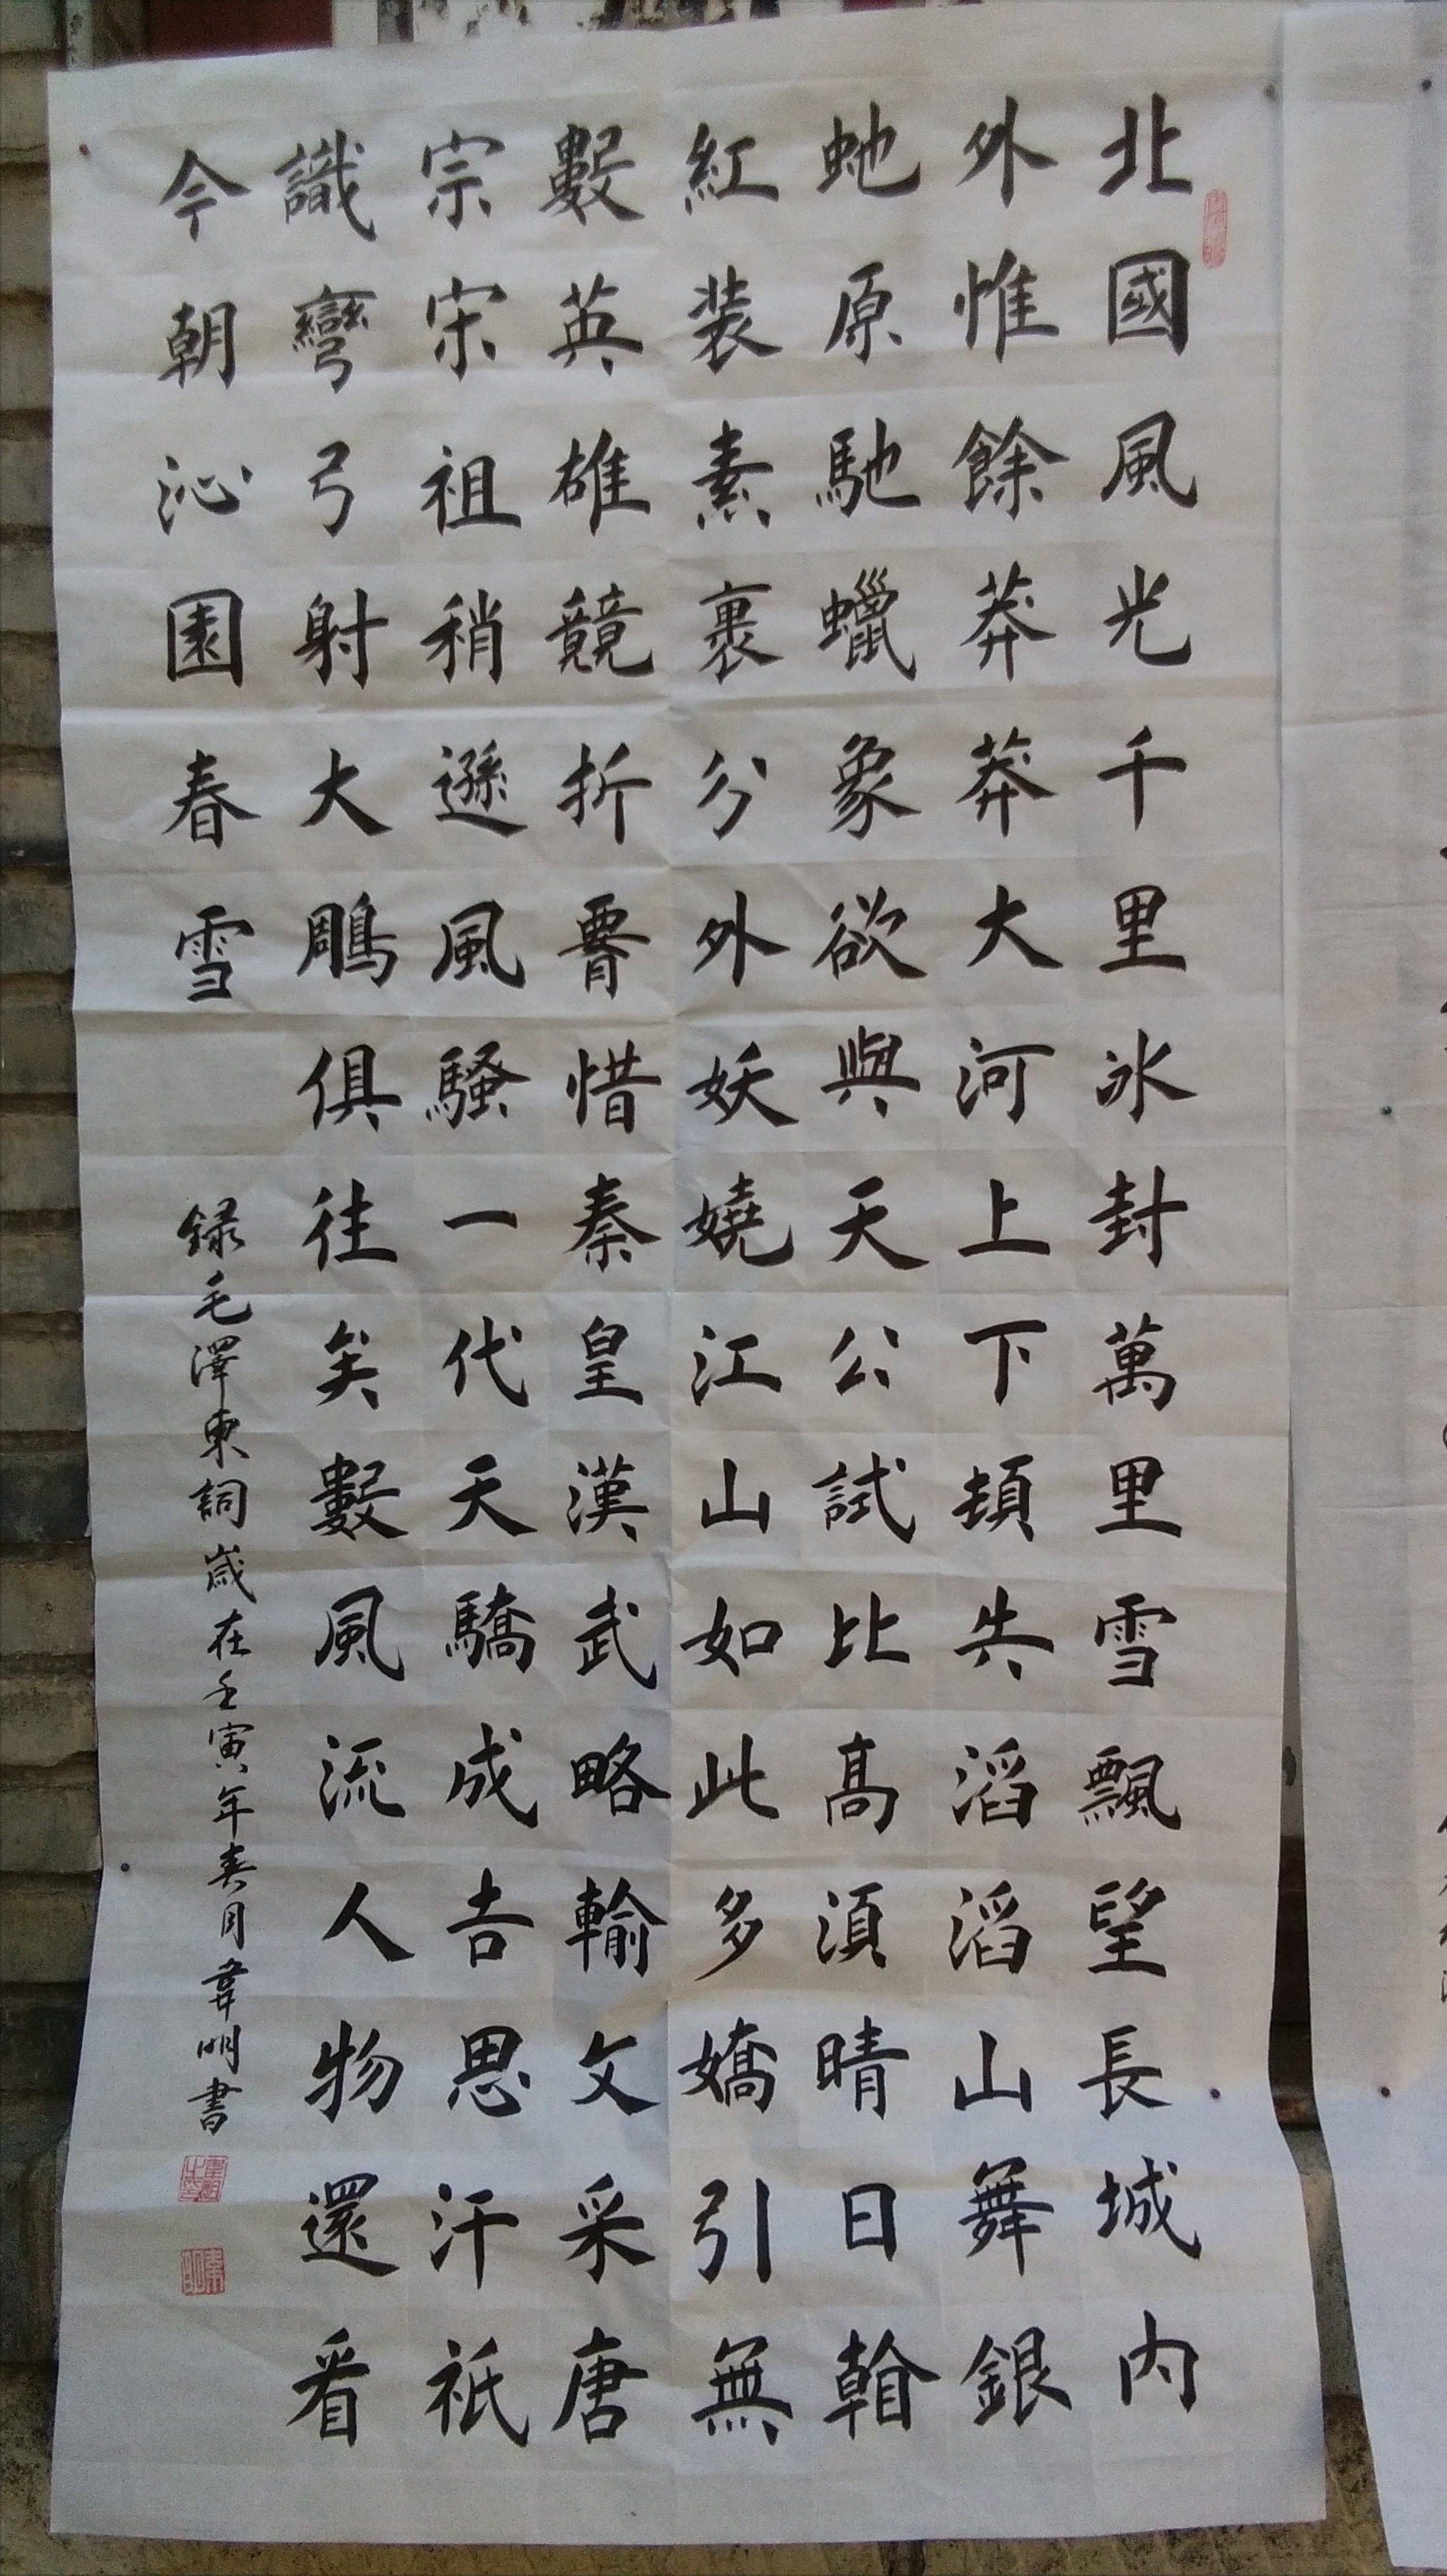 北國風光千里冰封萬里雪飄望長城內
外惟餘莽莽大河上下頓失滔滔山舞銀
虵原馳蠟象欲與天公試比高須晴日看
紅装素裹分外妖嬈江山如此多嬌引無
數英雄競折𦝫惜秦皇漢武略輸文采唐
宗宋祖稍遜風騷一代天驕成吉思汗衹
識彎弓射大鵰俱往矣數風流人物還看
今朝沁園春雪
録毛澤東詞歲在壬寅年春月韋明書